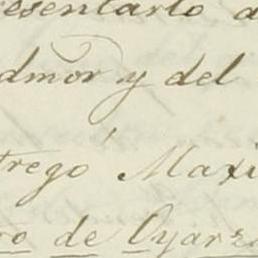 resentarlo a
dmor y del
trego Maxi
ro de Oyarz